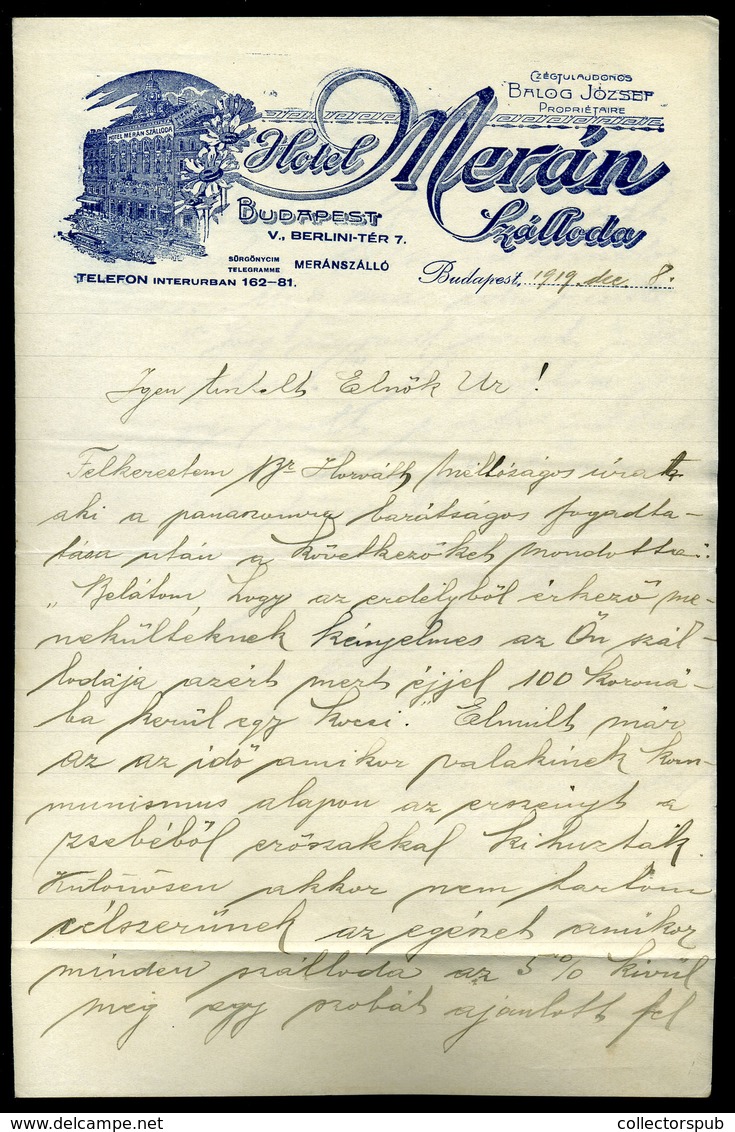 CZÉGTULAJDONOS
BALOG JÓZSEF
PROPRIÉTAIRE
HOTEL MERÁN SZÁLLODA
Hotel Merán
Szálloda
BUDAPEST
V., BERLINI-TÉR 7.
SÜRGÖNYCIM
TELEGRAMME MERÁNSZÁLLÓ
TELEFON INTERURBAN 162–81.
Budapest, 1919. dec. 8.
Igen tisztelt Elnök Ur!
Felkerestem Br Horváth Méltóságos úrat
aki a panaszomra barátságos fogadta-
tása után a következőket mondotta:
"Belátom, hogy az erdélyből érkező me-
nekülteknek kényelmes az Ön szál-
lodája azért mert éjjel 100 koroná-
ba kerül egy kocsi." Elmúlt már
az az idő amikor valakinek kom-
munismus alapon az erszényt a
zsebéből erőszakkal kihuzták.
Különösen akkor nem tartom
célszerűnek az egészet amikor
minden szálloda az 5% kivül
még egy szobát ajánlott fel
collectorspub